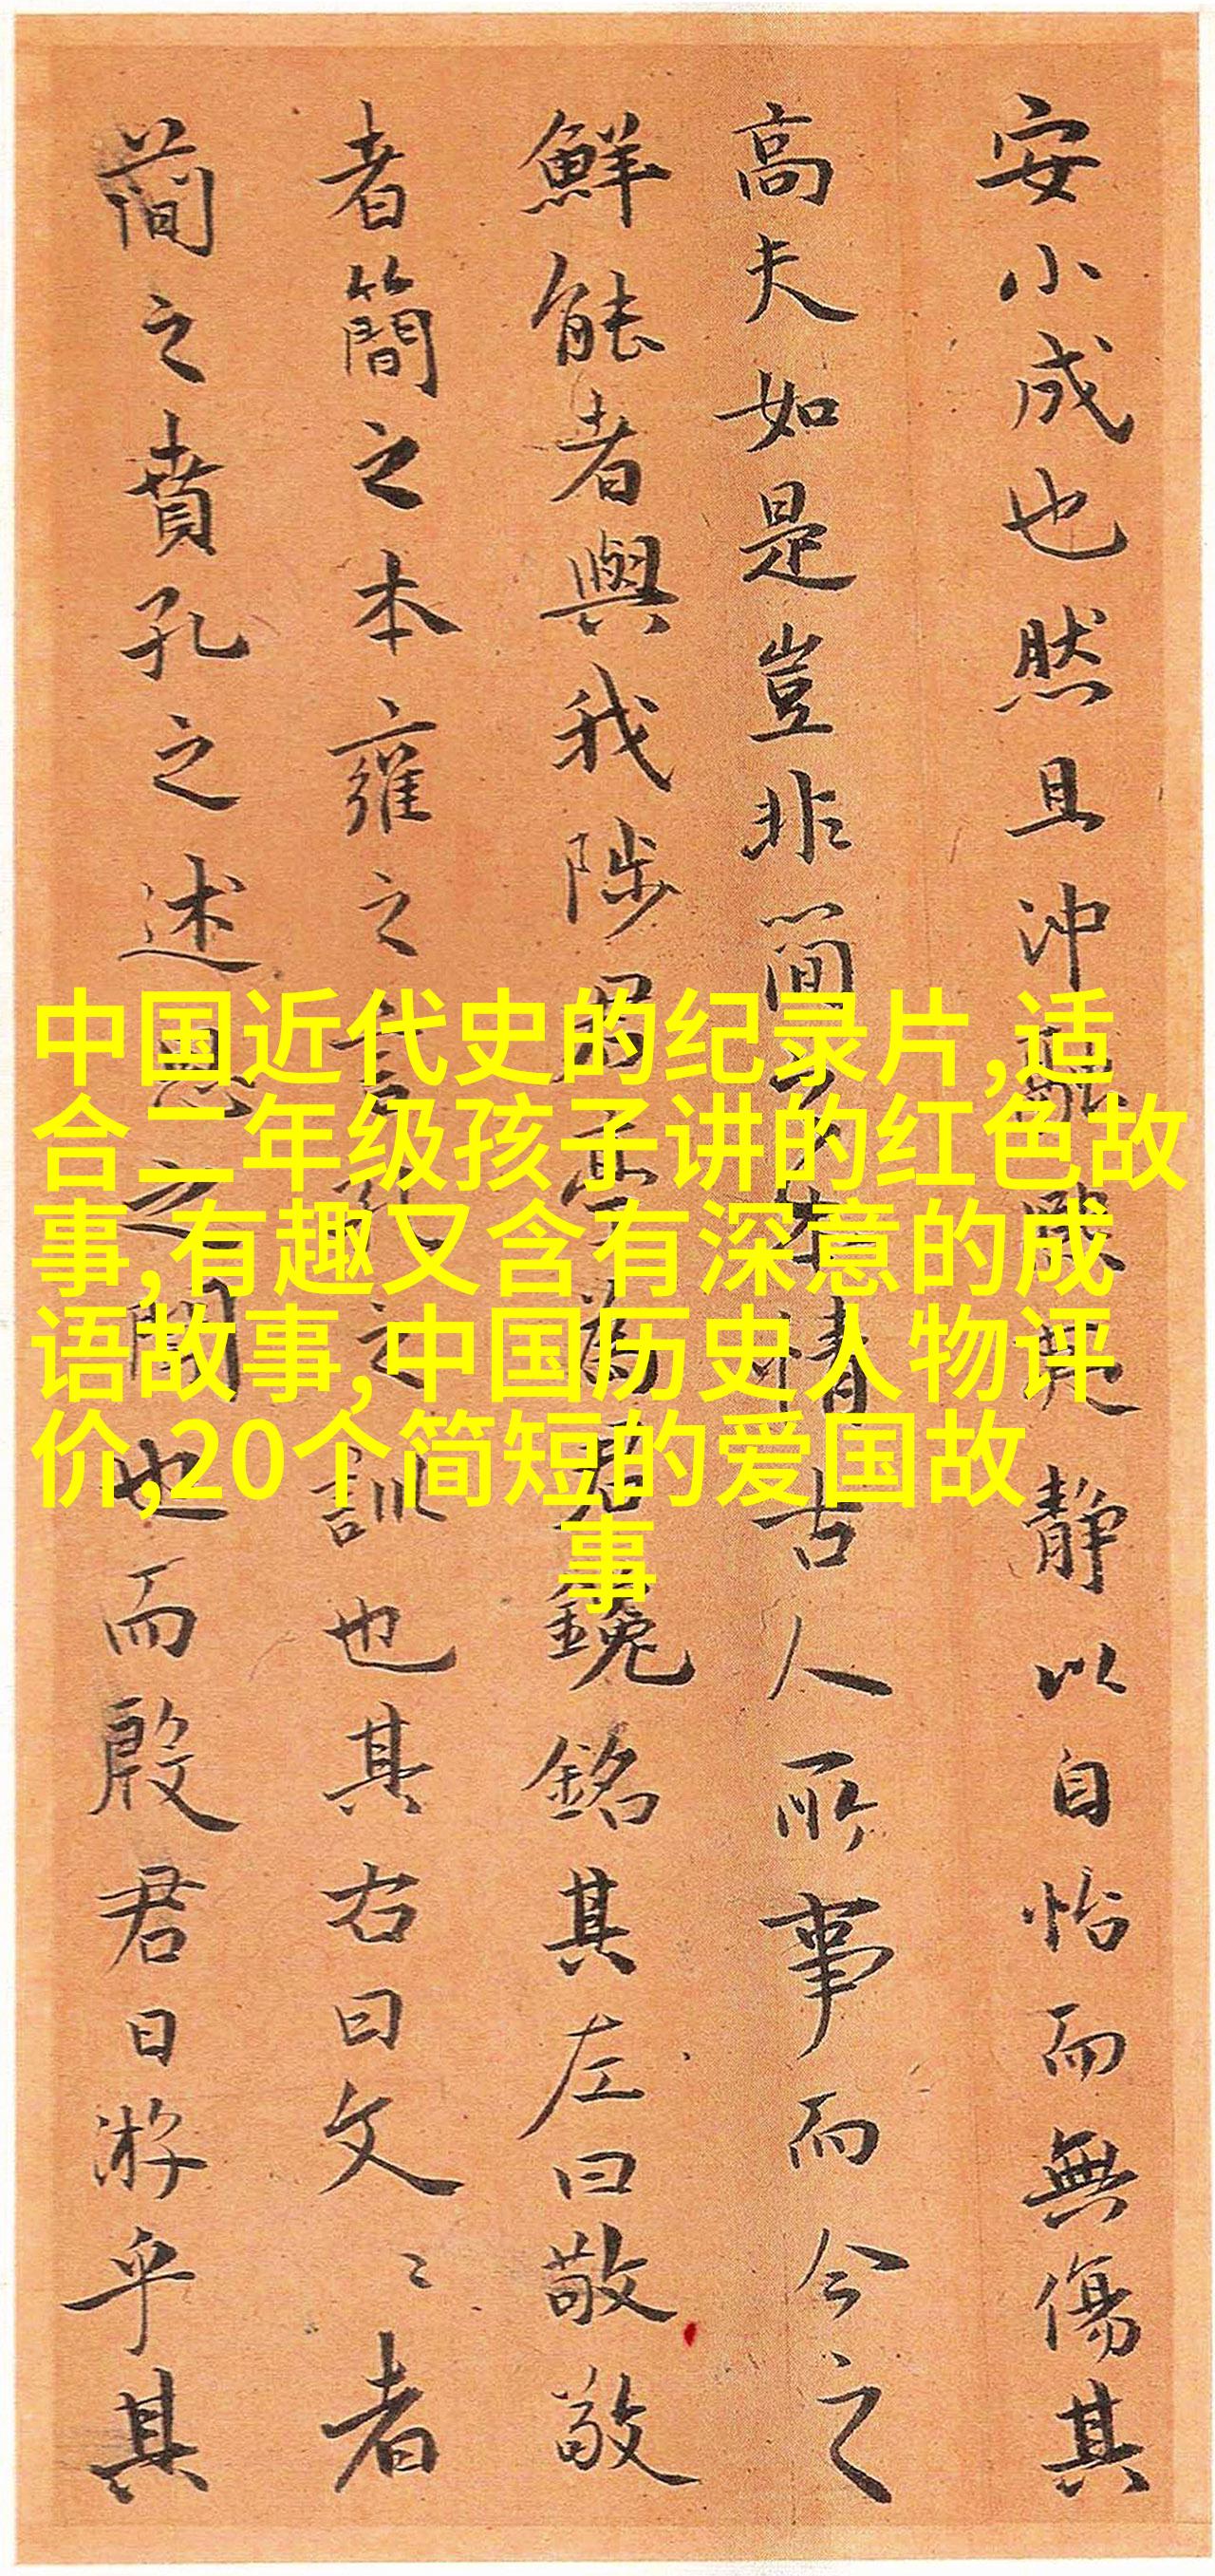 安小成也然且沖融靜以自怡而無傷其
高夫如是豈非簡情古人所事而今之
鮮能者與我陟君堂為君鑱銘其左曰敬敬
者簡之本雍之言孔之訓也其右曰文〻者
簡之賁孔之述思之也而殷君日游乎其
中国近代史的纪录片,适
合二年级孩子讲的红色故
事,有趣又含有深意的成
语故事,中国历史人物评
价,20个简短的爱国故
事